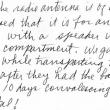 the radio antenna is of
ed that it is for an
with a speaker
compartment. We go
while transporting
after they had the fo
10 days convalescing
al!